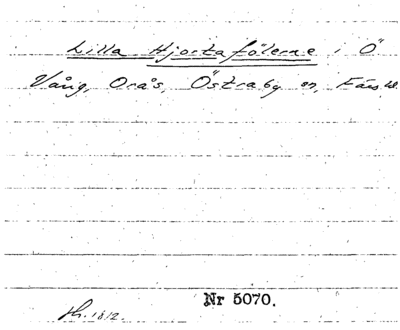 Lilla Hjortafölerne i Ö
Vång, Orås, Östraby sn, Färs hd.
Nr 5070.
1812.